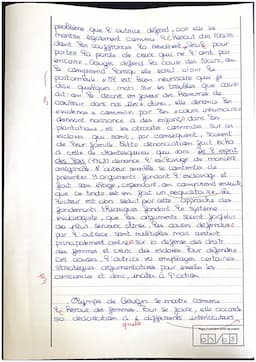 problème que l'autrice défend, car elle se
montre également comme l'héraut des Noirs
dont les souffrances la révoltent,
pour porter la parole de ceux qui ne l'ont pas
encore. Gouges défend la cause des Noirs, on
le comprend lorsqu'elle écrit dans le
postambule : « Il est bien nécessaire que je
dise quelques mots sur les troubles que cause
dit-on le décret en faveur des Hommes de
couleur dans nos îles ». Ainsi, elle dénonce les
violences commises par les colons
donnant naissance à des enfants dans les
plantations, et les atrocités commises sur ces
esclaves qui sont, par conséquent, souvent
de leur famille. Cette dénonciation fait écho
à celle de Montesquieu qui dans De l'esprit
des lois (1748) dénonce l'esclavage de manière
originale. L'auteur semble se contenter de
présenter 9 arguments fondant l'esclavage et
fait son éloge ; cependant, on comprend ensuite
que ce texte est en fait un réquisitoire. Le
lecteur est alors séduit par cette approche des
fondements théoriques fondant le système
esclavagiste, que les arguments soient farfelus
ou plus sérieux. Donc, les causes défendues
par l'autrice sont multiples mais restent
principalement centrées sur la défense des droits
des femmes et ceux des esclaves. Pour défendre
ces causes, l'autrice va employer certaines
stratégies argumentatives pour éveiller les
consciences et donc, inciter à l'action.
Olympe de Gouges se montre comme
le héraut des femmes. Pour se faire, elle accorde
sa déclaration à différents interlocuteurs